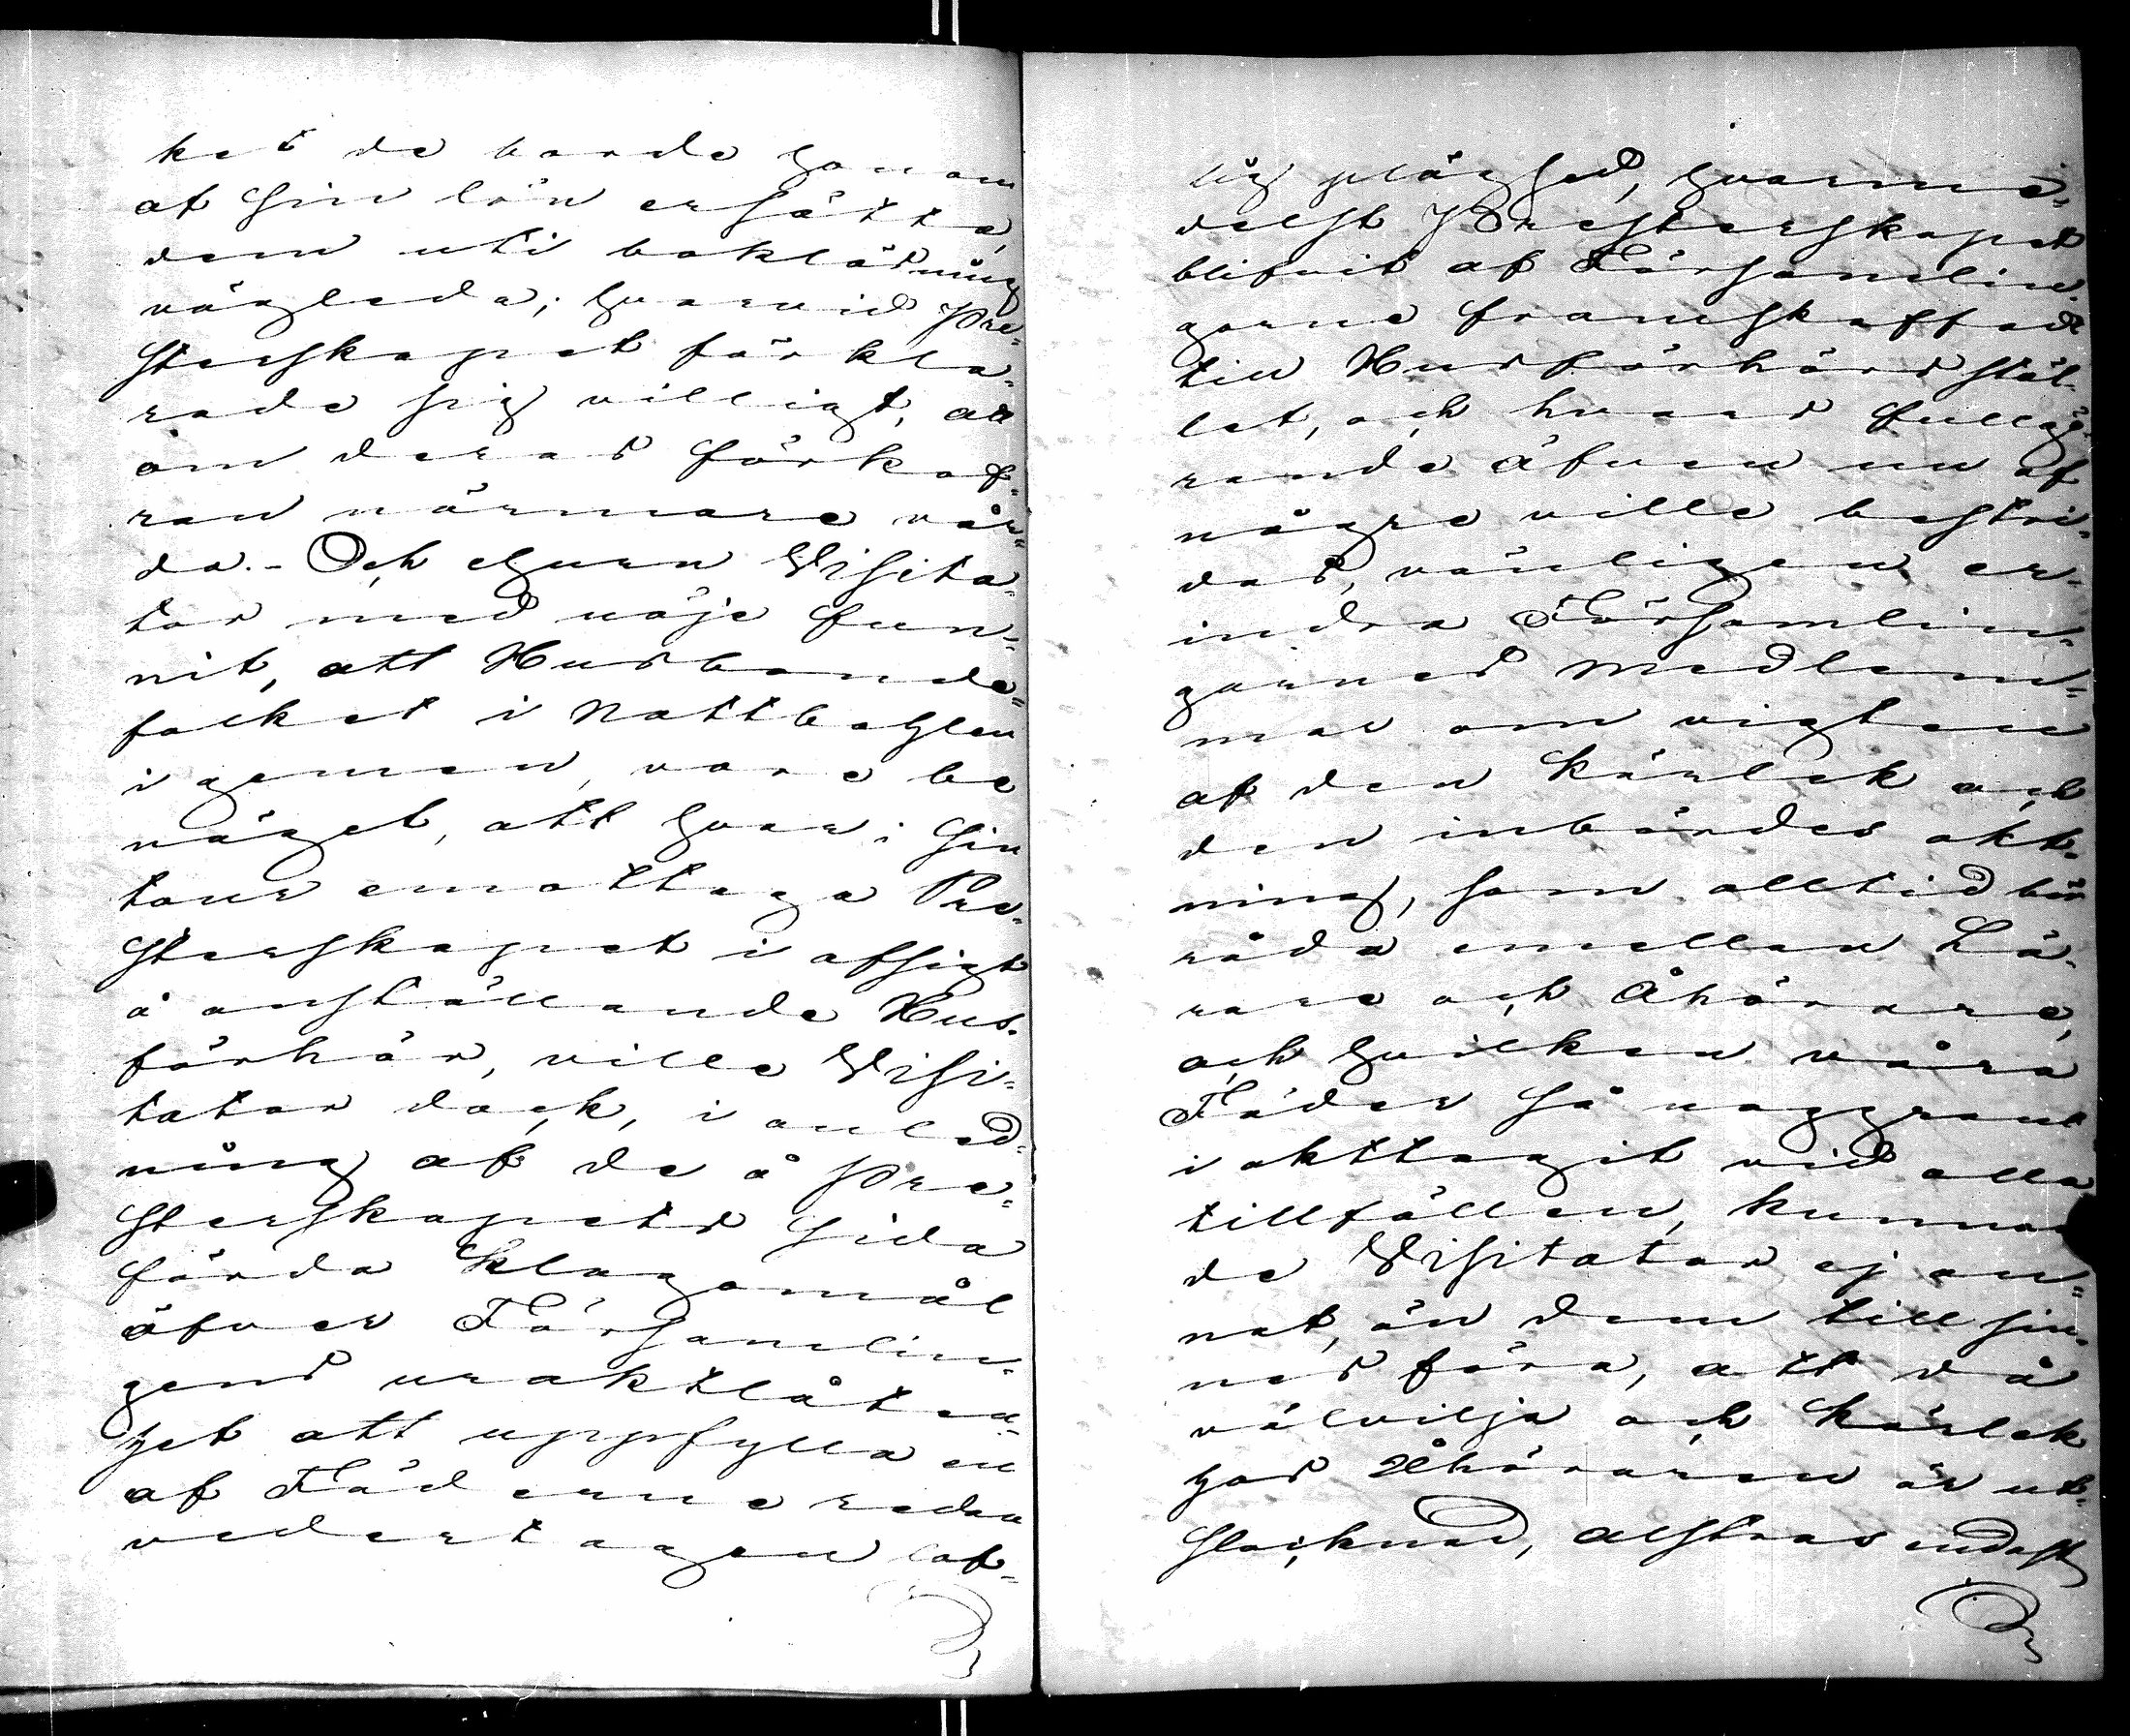 kes de borde genom
at sin lön ersätta,
dem uti boklärning
vägleda; hvarvid Pre-
sterskapet förkla-
rade sig villigt, att
om deras förkof-
ran närmare vår-
da. - Och ehuru Visita-
tor med nöje fun-
nit, att Husbonde-
folket i Nattbohlen
i gemen, vore be
näget, att hvar i sin
tour emottaga Pre-
sterskapet i afsigt
å anställande Hus-
förhör, ville Visi-
tator dock, i anled-
ning af de å Pre-
sterskapets sida
förda klagomål
öfver Församlin-
gens uraktlåten-
het att uppfylla en
af Fäderne redan
vedertagen lof-
lig plägsed, hvarme-
delst Presterskapet
blifvit af Församlin-
garne framskaffad
till Husförhörs stäl-
let, och hvars fullgö-
rande äfven nu af
någre ville bestri-
das, vänligen er-
indra Församlin-
garnes Medlem-
mar om vigten
af den kärlek och
den inbördes akt-
ning, som alltid bör
råda emellan Lä-
rare och Åhörare,
och hvilken våra
Fäder så noggrant
iakttagit vid alla
tillfällen, kunnan-
de Visitator ej an-
nat, än dem till sin-
nes föra, att då
välvilja och kärlek
hos Åhöraren är ut-
släcknad, alstras endast